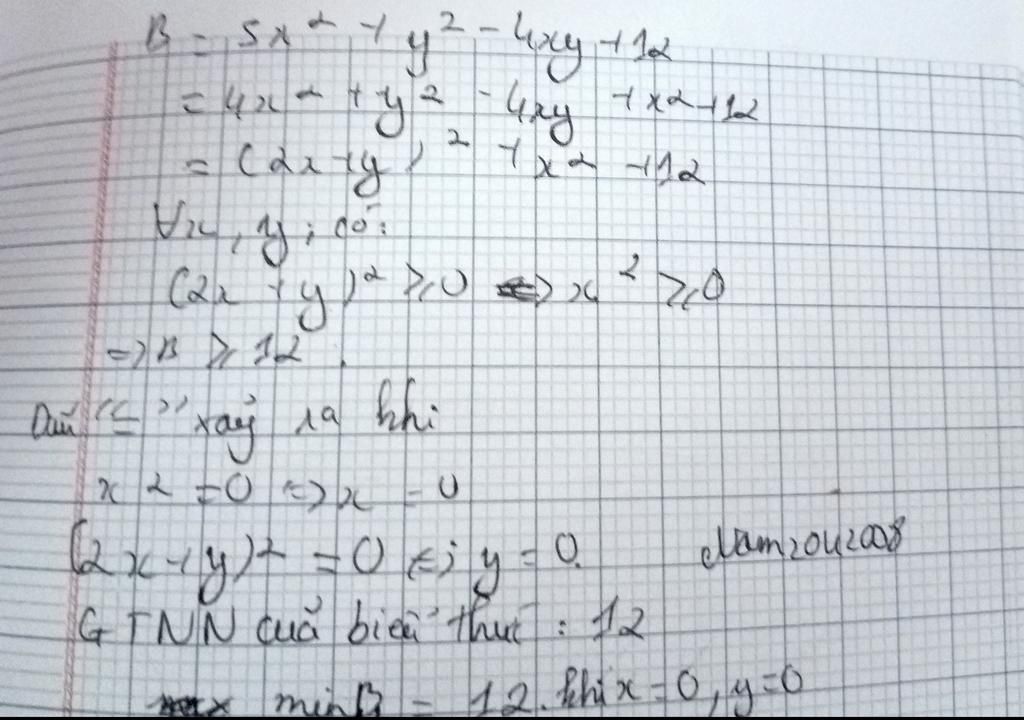 B = 5x² + y² - 4xy + 12
= 4x² + y² - 4xy + x² + 12
= (2x + y)² + x² + 12
∀x, y; có:
(2x + y)² ≥ 0 ⇔ x² ≥ 0
=> B ≥ 12.
Dấu "=" xảy ra khi
x² = 0 => x = 0
(2x + y)² = 0 <=> y = 0.
Nam2042008
GTNN của biểu thức : 12
min B = 12. khi x = 0, y = 0